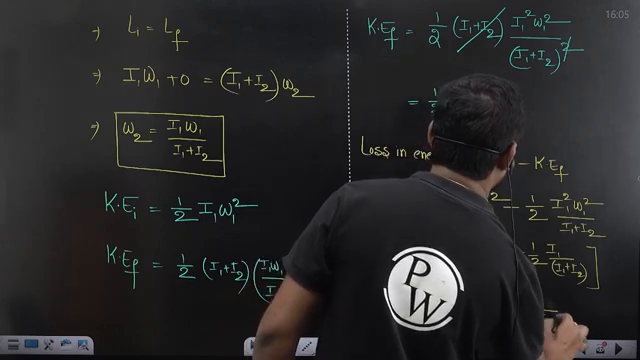 ⇒ L₁ = L_f
⇒ I₁ω₁ + 0 = (I₁+I₂)ω₂
⇒ ω₂ = I₁ω₁ / (I₁+I₂)
K·Eᵢ = 1/2 I₁ω₁²
K·E_f = 1/2 (I₁+I₂) (I₁ω₁
16:05
K·E_f = 1/2 (I₁+I₂) I₁²ω₁² / (I₁+I₂)²
= 1/
Loss in ene − K·E_f
² − 1/2 I₁²ω₁² / (I₁+I₂)
1/2 I₁ / (I₁+I₂) ]
PW